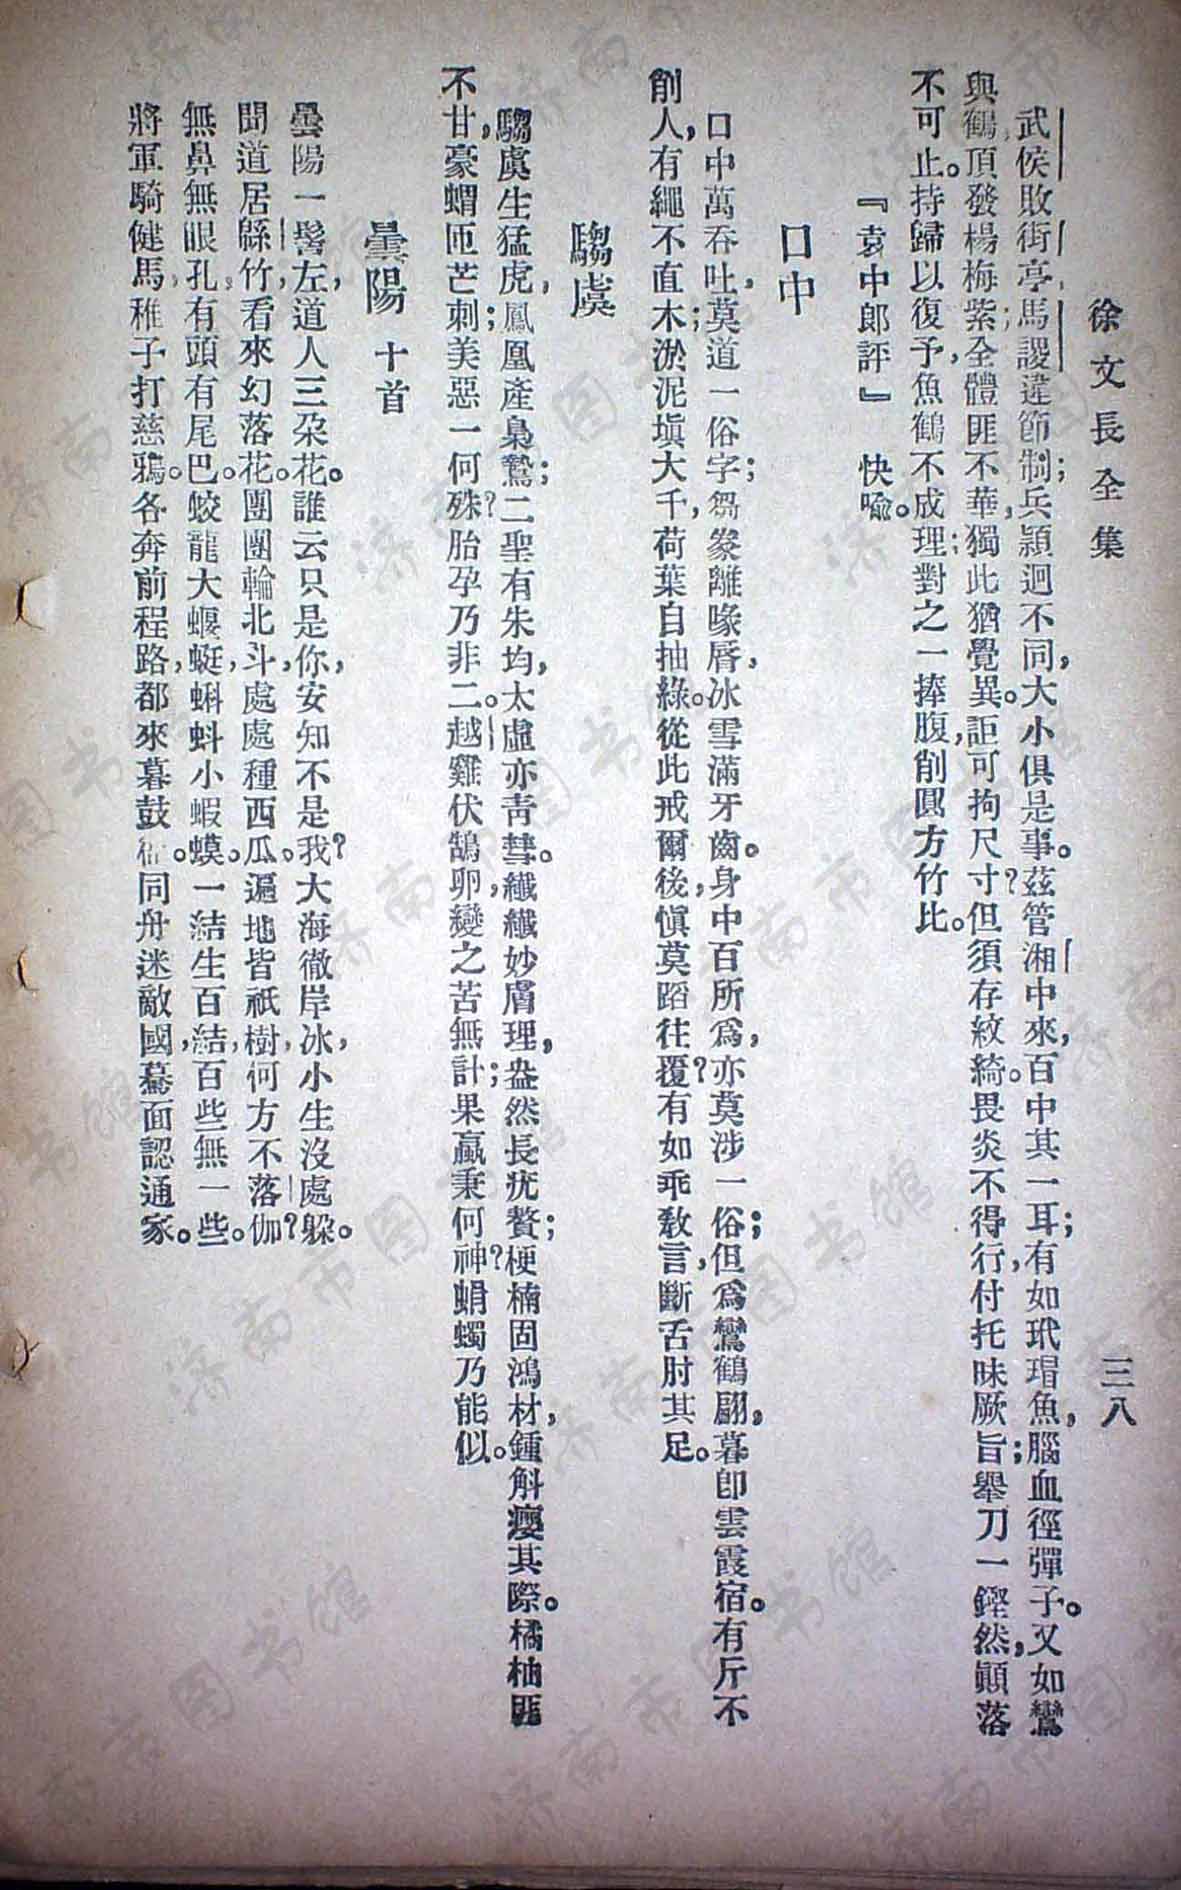 徐文長全集
三八
武侯敗街亭，馬謖違節制；兵穎迥不同，大小俱是事。茲管湘中來，百中其一耳；有如玳瑁魚，腦血徑彈子。又如鸞
與鶴，頂發楊梅紫；全體匪不華，獨此猶覺異。詎可拘尺寸？但須存紋綺。畏炎不得行，付托昧厥旨；舉刀一鏗然，顚落
不可止。持歸以復予，魚鶴不成理；對之一捧腹，削圓方竹比。
『袁中郎評』 快喩。
口中
口中萬吞吐，莫道一俗字；芻豢離喙脣，冰雪滿牙齒。身中百所爲，亦莫涉一俗；但爲鸞鶴翩，暮卽雲霞宿。有斤不
削人，有繩不直木；淤泥塡大千，荷葉自抽綠。從此戒爾後，愼莫蹈往覆？有如乖敎言，斷舌肘其足。
騶虞
騶虞生猛虎，鳳凰產梟鷙；二聖有朱均，太虛亦靑彗。纖纖妙膚理，盎然長疣贅；梗楠固鴻材，鍾斛癭其際。橘柚匪
不甘，豪蝟匝芒刺；美惡一何殊？胎孕乃非二。越雞伏鵠卵，變之苦無計；果蠃秉何神？蜎蠋乃能似。
曇陽 十首
曇陽一髻左，道人三朶花。誰云只是你，安知不是我？大海徹岸冰，小生沒處躱。
聞道居緜竹，看來幻落花。團團輪北斗，處處種西瓜。遍地皆祇樹，何方不落伽？
無鼻無眼孔，有頭有尾巴。蛟龍大蝘蜓，蝌蚪小蝦蟆。一結生百結，百些無一些。
將軍騎健馬，稚子打慈鴉。各奔前程路，都來暮鼓衙。同舟迷敵國，驀面認通家。